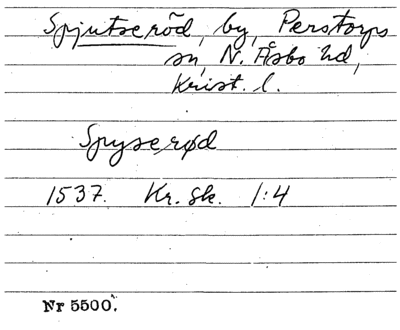 Spjutseröd, by, Perstorps
sn, N. Åsbo hd,
Krist. l.
Spyserød
1537. Kr. Sk. 1:4
Nr 5500.